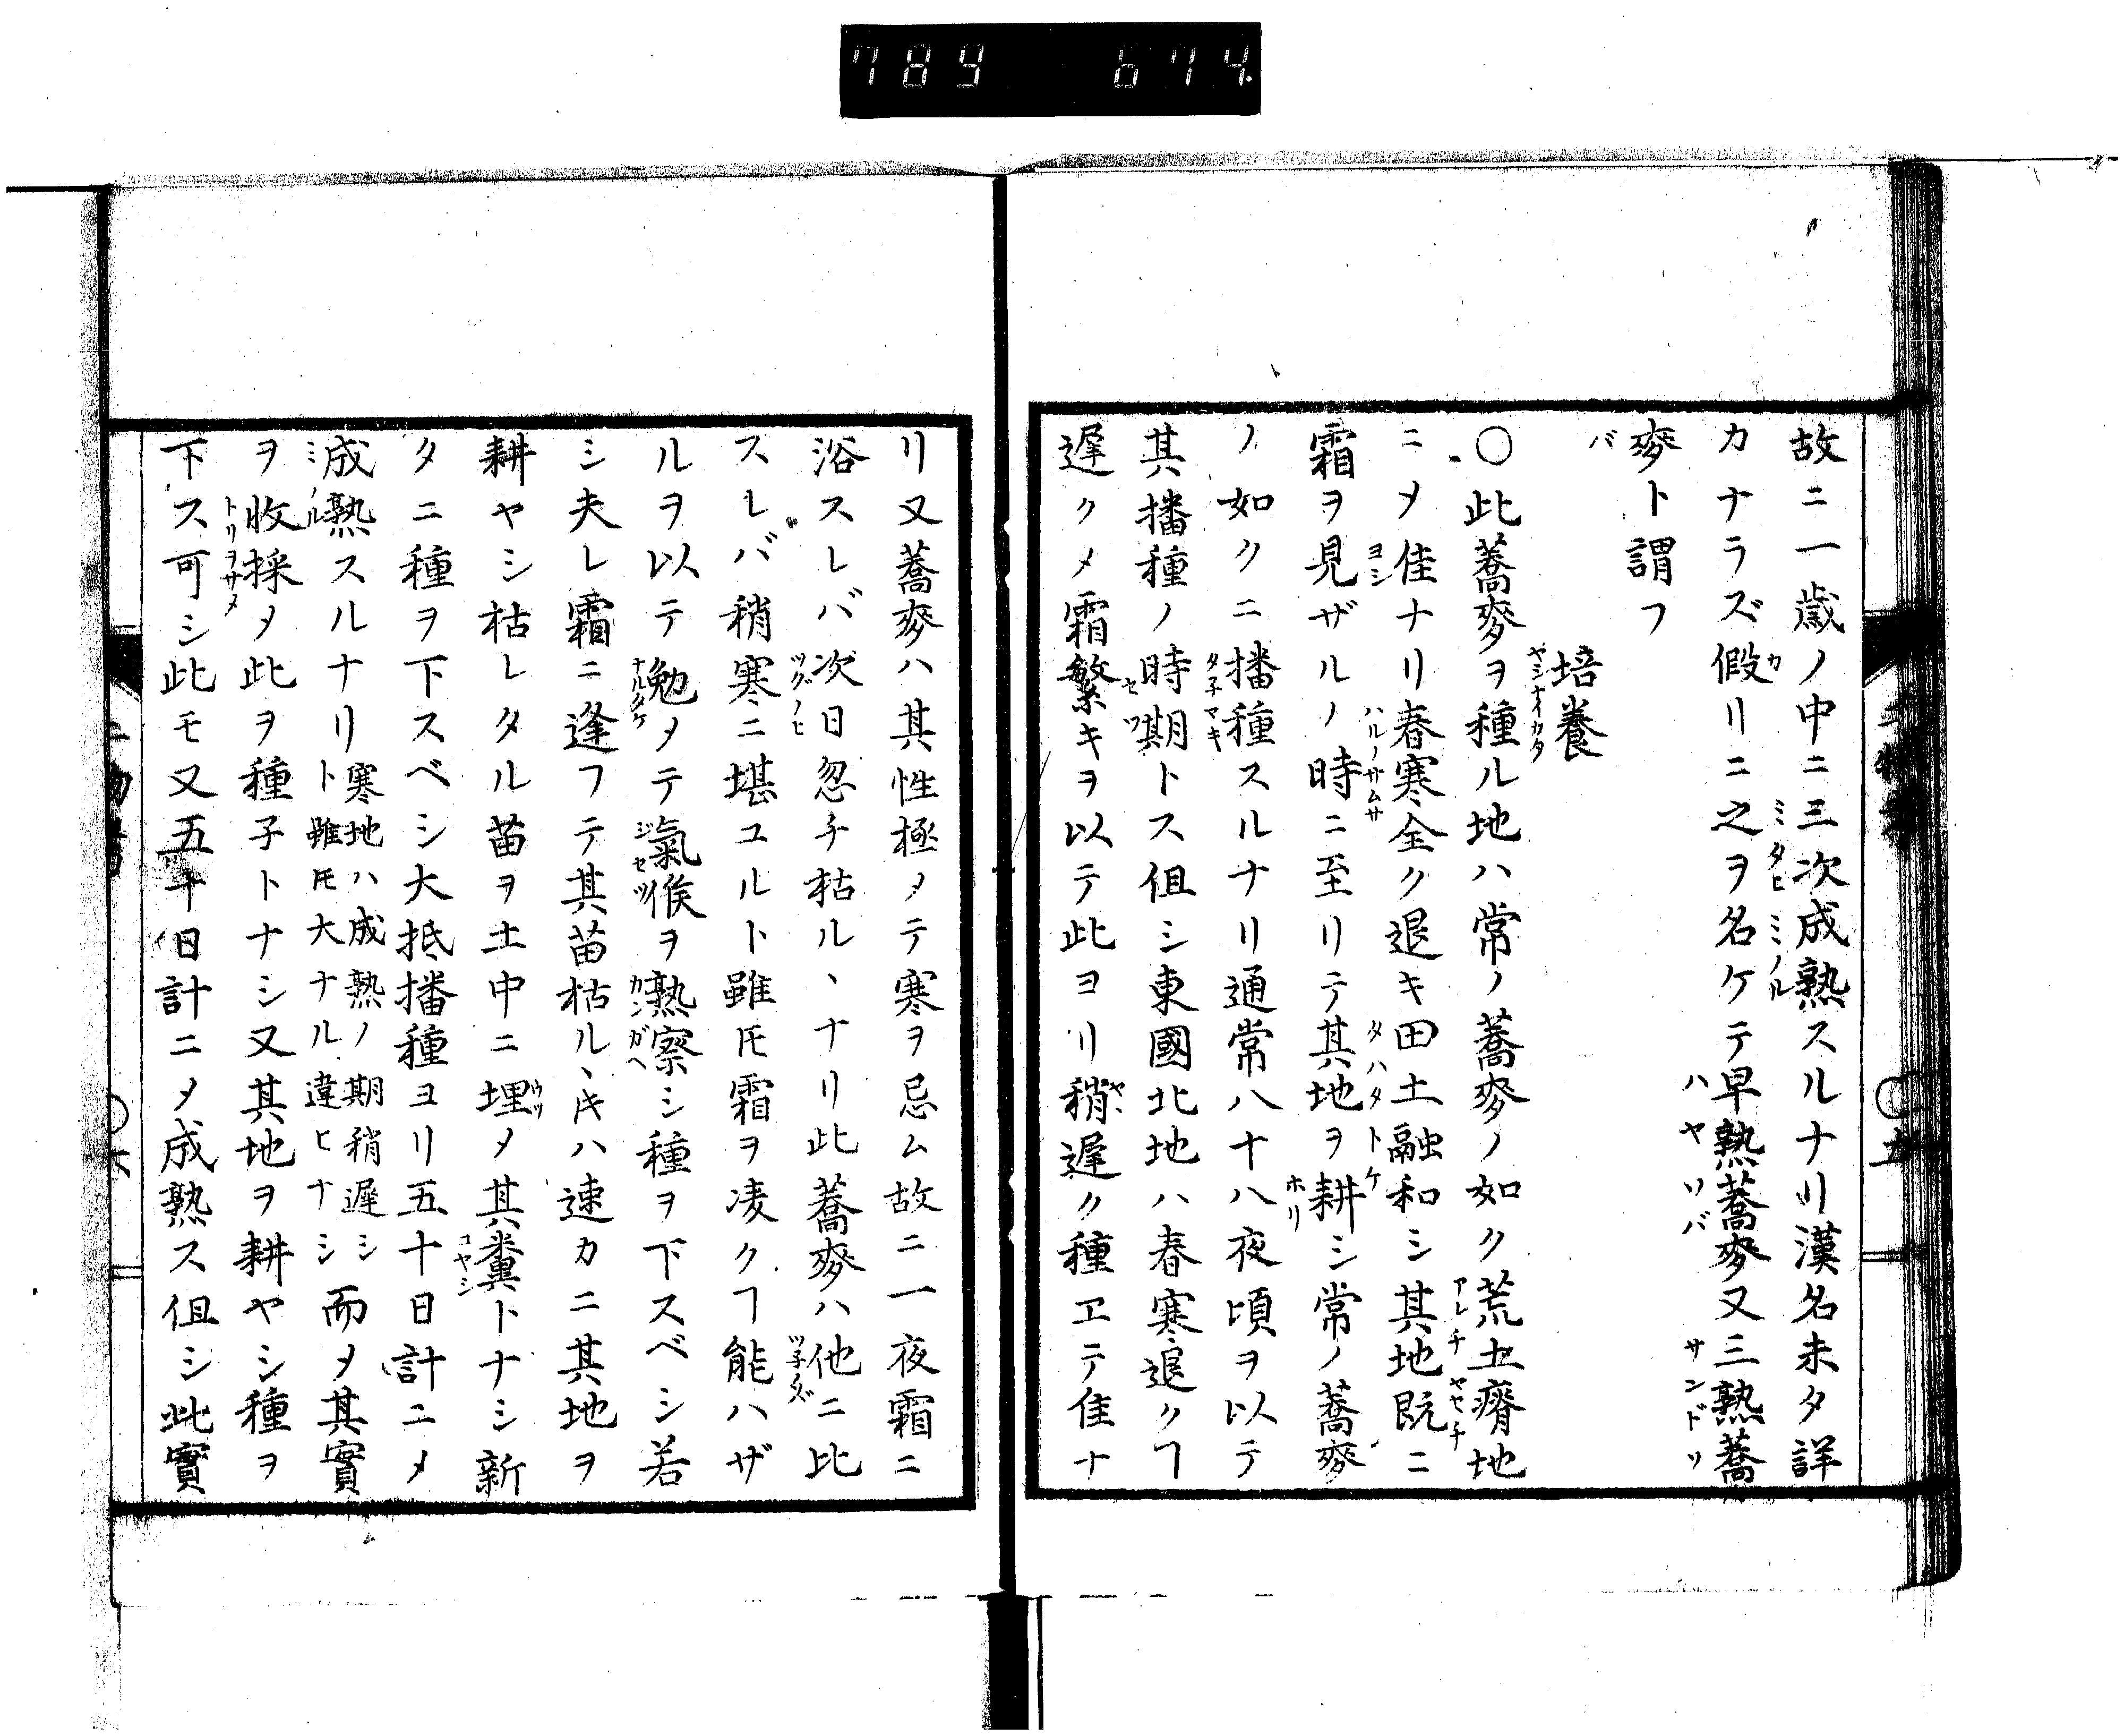 789 674
故ニ一歳ノ中ニ三次成熟スルナリ漢名未タ詳
カナラズ假リニ之ヲ名ケテ早熟蕎麥又三熟蕎
麥ト謂フ
培養
○此蕎麥ヲ種ル地ハ常ノ蕎麥ノ如ク荒土瘠地
ニメ佳ナリ春寒全ク退キ田土融和シ其地既ニ
霜ヲ見ザルノ時ニ至リテ其地ヲ耕シ常ノ蕎麥
ノ如クニ播種スルナリ通常八十八夜頃ヲ以テ
其播種ノ時期トス但シ東國北地ハ春寒退クヿ
遅クメ霜繁キヲ以テ此ヨリ稍遅ク種エテ佳ナ
リ又蕎麥ハ其性極メテ寒ヲ忌ム故ニ一夜霜ニ
浴スレバ次日忽チ枯ル丶ナリ此蕎麥ハ他ニ比
スレバ稍寒ニ堪ユルト雖𪜈霜ヲ凌クヿ能ハザ
ルヲ以テ勉メテ氣候ヲ熟察シ種ヲ下スベシ若
シ夫レ霜ニ逢フテ其苗枯ル丶𪜈ハ速カニ其地ヲ
耕ヤシ枯レタル苗ヲ土中ニ埋メ其糞トナシ新
タニ種ヲ下スベシ大抵播種ヨリ五十日計ニメ
成熟スルナリ寒地ハ成熟ノ期稍遅シト雖𪜈大ナル違ヒナシ而メ其實
ヲ收採メ此ヲ種子トナシ又其地ヲ耕ヤシ種ヲ
下ス可シ此モ又五十日計ニメ成熟ス但シ此實